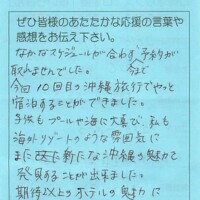 ぜひ皆様のあたたかな応援の言葉や
感想をお伝え下さい。
なかなかスケジュールが合わず予約が
取れませんでした。今まで
今回10回目の沖縄旅行でやっと
宿泊することができました。
子供もプールや海に大喜び、私も
海外リゾートのような雰囲気に
また更に新たな沖縄の魅力を
発見することが出来ました。
期待以上のホテルの魅力に